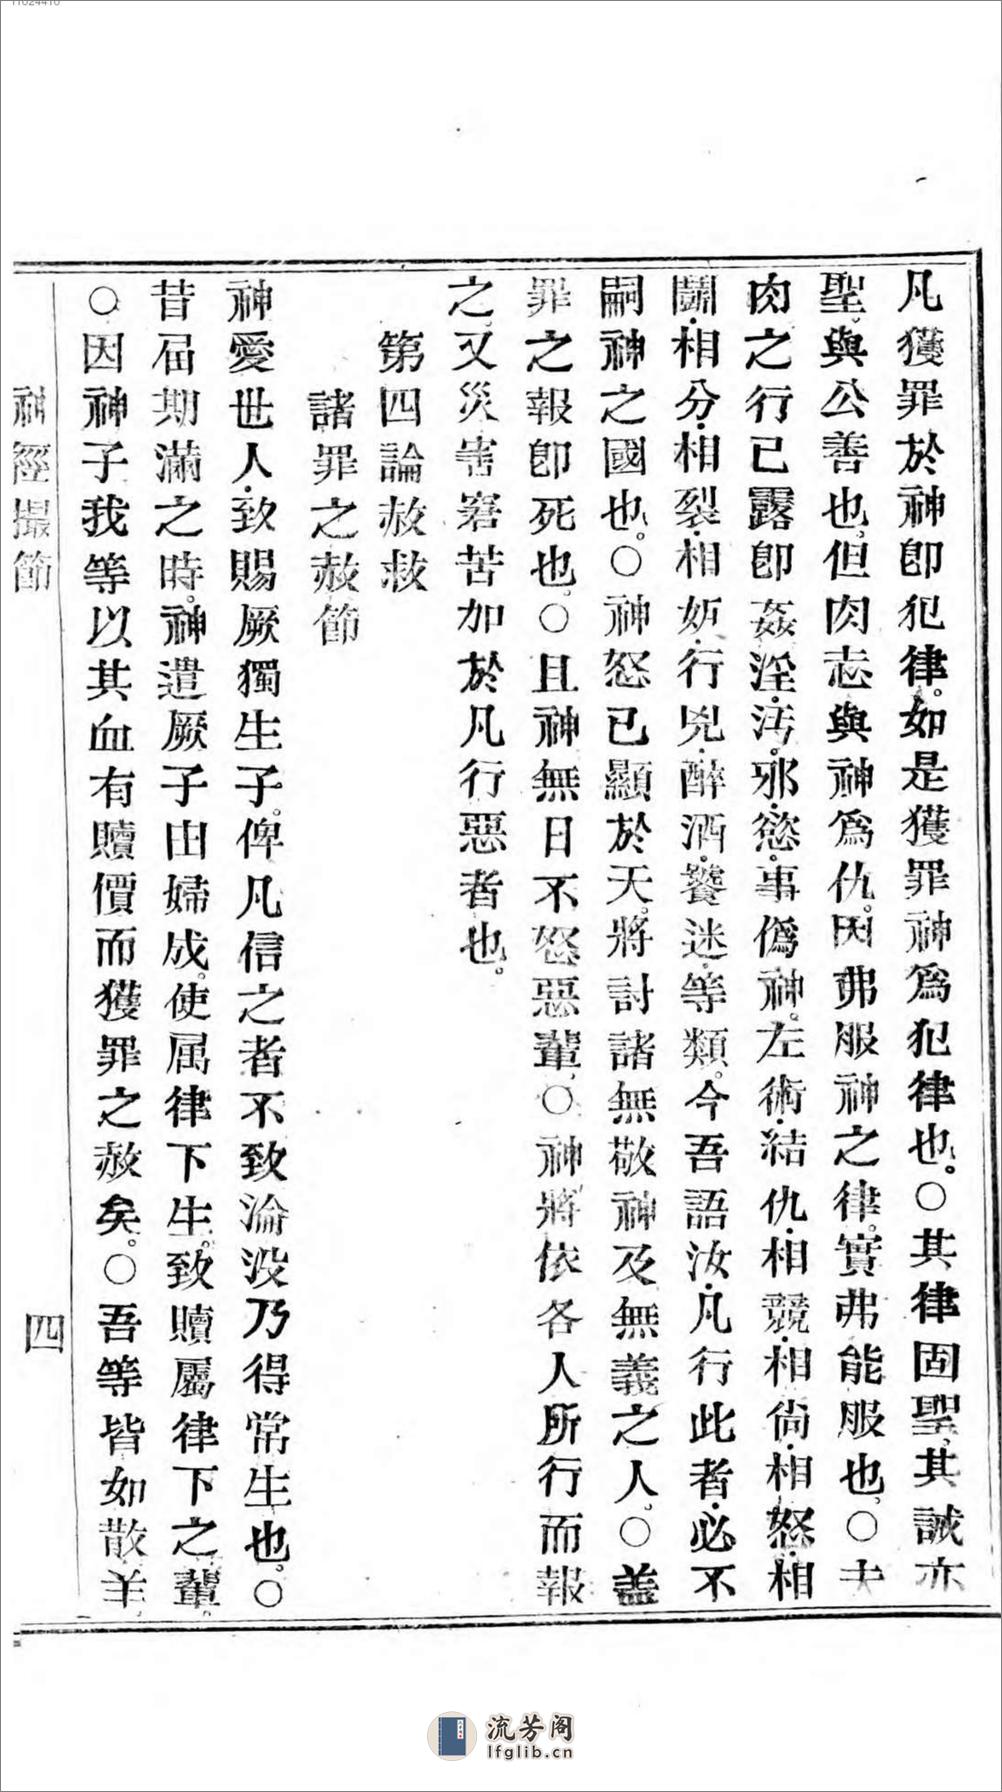 凡獲罪於神卽犯律。如是獲罪神爲犯律也。〇其律固聖。其誡亦
聖。與公善也。但肉志與神爲仇。因弗服神之律。實弗能服也。〇夫
肉之行已露卽姦淫、汚、邪慾、事僞神。左術、結仇、相競、相尙、相怒、相
鬪、相分、相裂、相妬、行兇、醉酒、饕迷、等類。今吾語汝、凡行此者、必不
嗣神之國也。〇神怒已顯於天。將討諸無敬神及無義之人。〇蓋
罪之報卽死也。〇且神無日不怒惡輩。〇神將依各人所行而報
之。又災害窘苦加於凡行惡者也。
第四論赦救
諸罪之赦節
神愛世人、致賜厥獨生子。俾凡信之者不致淪沒乃得常生也。〇
昔屆期滿之時。神遣厥子由婦成。使属律下生。致贖屬律下之輩。
〇因神子我等以其血有贖價而獲罪之赦矣。〇吾等皆如散羊。
神經撮節
四
流芳阁
lfglib.cn